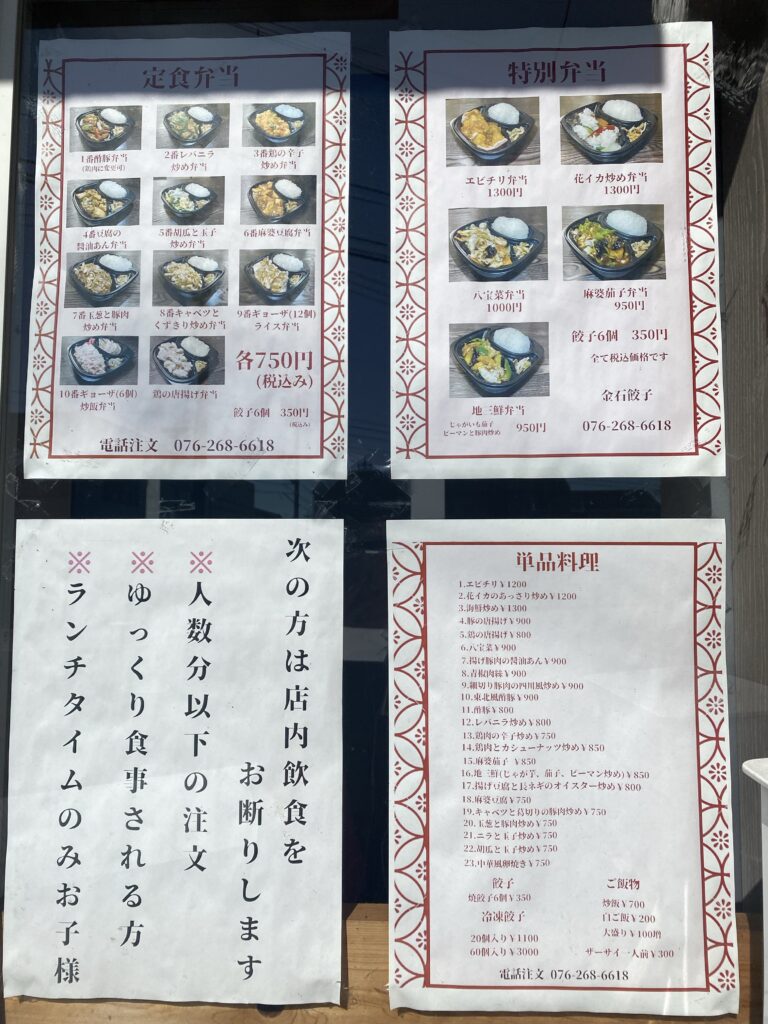 定食弁当
1番酢豚弁当
(鶏肉に変更可)
2番レバニラ
炒め弁当
3番鶏の辛子
炒め弁当
4番豆腐の
醤油あん弁当
5番胡瓜と玉子
炒め弁当
6番麻婆豆腐弁当
7番玉葱と豚肉
炒め弁当
8番キャベツと
くずきり炒め弁当
9番ギョーザ(12個)
ライス弁当
10番ギョーザ(6個)
炒飯弁当
鶏の唐揚げ弁当
各750円
(税込み)
餃子6個 350円
(税込み)
電話注文 076-268-6618
特別弁当
エビチリ弁当
1300円
花イカ炒め弁当
1300円
八宝菜弁当
1000円
麻婆茄子弁当
950円
餃子6個 350円
全て税込価格です
地三鮮弁当
じゃがいも茄子
ピーマンと豚肉炒め
950円
金石餃子
076-268-6618
次の方は店内飲食を
お断りします
※人数分以下の注文
※ゆっくり食事される方
※ランチタイムのみお子様
単品料理
1.エビチリ¥1200
2.花イカのあっさり炒め¥1200
3.海鮮炒め¥1300
4.豚の唐揚げ¥900
5.鶏の唐揚げ¥800
6.八宝菜¥900
7.揚げ豚肉の醤油あん¥900
8.青椒肉絲¥900
9.細切り豚肉の四川風炒め¥900
10.東北風酢豚¥900
11.酢豚¥800
12.レバニラ炒め¥800
13.鶏肉の辛子炒め¥750
14.鶏肉とカシューナッツ炒め¥850
15.麻婆茄子 ¥850
16.地三鮮(じゃが芋、茄子、ピーマン炒め)¥850
17.揚げ豆腐と長ネギのオイスター炒め¥800
18.麻婆豆腐¥750
19.キャベツと葛切りの豚肉炒め¥750
20.玉葱と豚肉炒め¥750
21.ニラと玉子炒め¥750
22.胡瓜と玉子炒め¥750
23.中華風卵焼き¥750
餃子
焼餃子6個¥350
冷凍餃子
20個入り¥1100
60個入り¥3000
ご飯物
炒飯¥700
白ご飯¥200
大盛り¥100増
ザーサイ一人前¥300
電話注文 076-268-6618